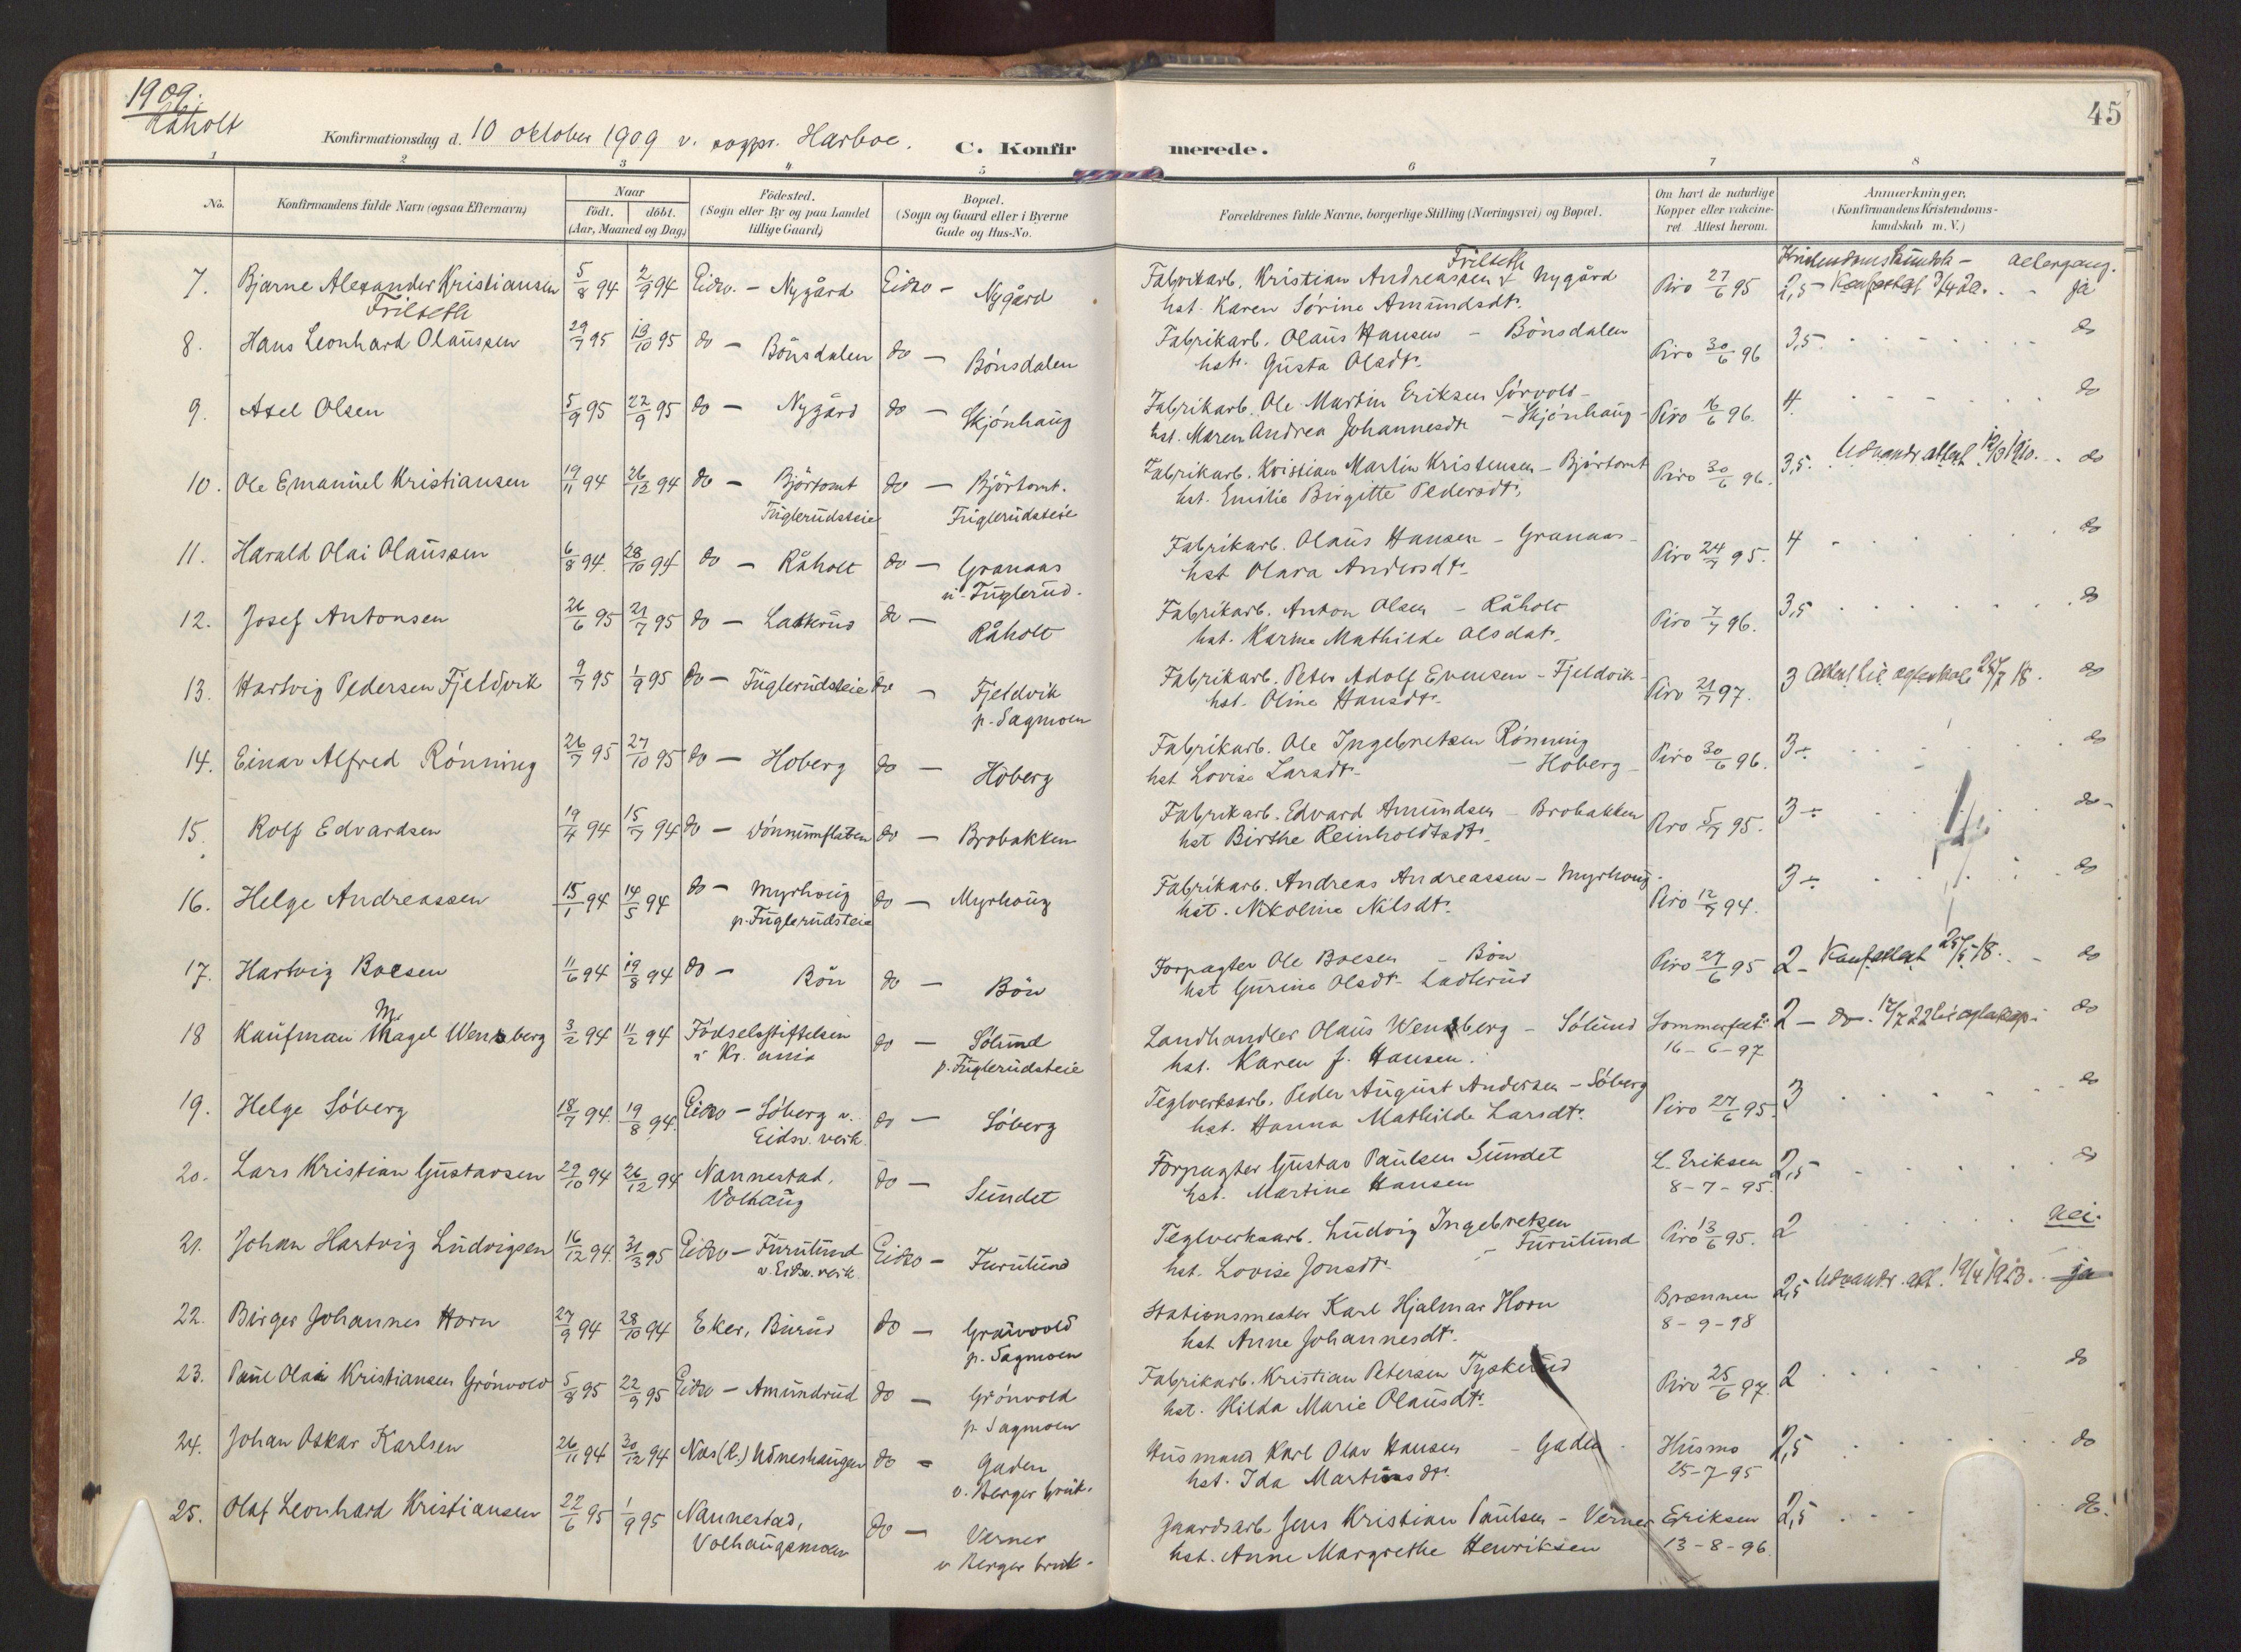 1909.
Råholt
45
Konfirmationsdag d. 10 oktober 1909 v. sogpr. Harboe.
C. Konfirmerede.
1 2 3 4 5 6 7 8
No.
Konfirmandens fulde Navn (ogsaa Efternavn)
Naar
födt. döbt.
(Aar, Maaned og Dag)
Födested.
(Sogn eller By og paa Landet
tillige Gaard)
Bopæl.
(Sogn og Gaard eller i Byerne
Gade og Hus-No.
Forældrenes fulde Navne, borgerlige Stilling (Næringsvei) og Bopæl.
Om havt de naturlige
Kopper eller vakcine-
ret Attest herom.
Anmærkninger.
(Konfirmandens Kristendoms-
kundskab m. V.)
Kristendomskundsk - altergang.
7. Bjarne Alexander Kristiansen 5/8 94 2/9 94 Eidsv. - Nygård Eidsv - Nygård Fabrikarb. Kristian Andreassen Nygård Piro 27/6 95 2,5 - Konfattest - ja
Frilseth
Frilseth
hst. Karen Sørine Amundsdtr.
8. Hans Leonhard Olaussen 29/7 95 13/10 95 do - Bönsdalen do - Bönsdalen Fabrikarb. Olaus Hansen - Bönsdalen Piro 30/6 96 3,5 do
hst. Gusta Olsdtr.
9. Axel Olsen 5/9 95 22/9 95 do - Nygård do - Skjönhaug Fabrikarb. Ole Martin Eriksen Sørvold - Piro 16/6 96. 4 do
hst. Maren Andrea Johannesdtr - Skjönhaug
10. Ole Emanuel Kristiansen 19/11 94 26/12 94 do - Björtomt do - Björtomt. Fabrikarb. Kristian Martin Kristensen - Björtomt Piro 30/6 96. 3,5. Udvandr.attest 1910. do
Fuglerudsteie Fuglerudsteie hst. Emilie Birgitte Pedersdtr.
11. Harald Olai Olaussen 6/8 94. 28/10 94 do - Råholt do - Granaas Fabrikarb. Olaus Hansen - Granaas - Piro 24/7 95. 4 do
u. Fuglerud. hst Olara Andersdtr.
12. Josef Antonsen 26/6 95 21/7 95 do - Ladkrud do - Råholt Fabrikarb. Anton Olsen - Råholt Piro 7/7 96. 3,5 do
hst. Karine Mathilde Olsdatr.
13. Hartvig Pedersen Fjeldvik 9/7 95 1/9 95 do - Fuglerudsteie do - Fjeldvik Fabrikarb. Peter Adolf Evensen - Fjeldvik Piro 21/7 97. 3 Attest til 18. do
p. Sagmoen hst. Oline Hansdtr.
14. Einar Alfred Rönning 26/7 95 27/10 95 do - Hoberg do - Hoberg Fabrikarb. Ole Ingebretsen Rönning Piro 30/6 96. 3÷ do
hst Lovise Larsdtr. - Hoberg -
15. Rolf Edvardsen 19/4 94 15/7 94 do - Dönnumflaten do - Brobakken Fabrikarb. Edvard Amundsen - Brobakken Piro 5/7 95. 3÷ do-
hst Birthe Reinholdtsdtr.
16. Helge Andreassen 15/1 94 14/5 94 do - Myrhoug do - Myrhoug Fabrikarb. Andreas Andreassen - Myrhoug. Piro 12/7 94. 3÷ do
p. Fuglerudsteie hst. Nikoline Nilsdtr.
17. Hartvig Boesen 11/6 94 19/8 94 do - Bön do - Bön Forpagter Ole Boesen - Bön Piro 27/6 95 2 - Konfattest 18. do
hst Gurine Olsdtr. Ladkrud
18 Kaufman Magel Wensberg 3/2 94 11/2 94 Födselsstiftelsen do - Sólund Landhandler Olaus Wensberg - Sólund Sommerfeldt 2 - do. 17/7 22 do
i Kr. ania p. Fuglerudsteie hst. Karen f. Hansen. 16-6-97
19. Helge Söberg 18/7 94. 19/8 94. Eidsv - Söberg v. do - Söberg Teglverksarb. Peder August Andersen - Söberg Piro 27/6 95. 3 do
Eidsv. verk. hst. Hanna Mathilde Larsdtr.
20. Lars Kristian Gustavsen 29/10 94 26/12 94 Nannestad, do - Sundet Forpagter Gustav Paulsen Sundet L. Eriksen 2,5 do
Volhaug hst. Martine Hansen 8-7-95.
21. Johan Hartvig Ludvigsen 16/12 94. 31/3 95 Eidsv - Furulund Eidsv - Furulund Teglverksarb. Ludvig Ingebretsen Piro 13/6 95. 2 nei.
v. Eidsv. verk. hst. Lovise Jonsdtr. - Furulund
22. Birger Johannes Horn 27/9 94 28/10 94 Eker, Burud do - Grawold Stationsmester Karl Hjalmar Horn Brennen 2,5 Udvandr. att. 19/4 1923. ja
p. Sagmoen hst Anne Johannesdtr. 8-9-98
23. Paul Olai Kristiansen Grönvold 5/8 95 22/9 95 Eidsv - Amundrud do - Grönvold Fabrikarb. Kristian Petersen Tyskerud Piro 25/6 97. 2 do
p. Sagmoen hst. Hilda Marie Olausdtr.
24. Johan Oskar Karlsen 26/11 94 30/12 94 Næs (R.) Udneshaugen do - Gaden Husmand Karl Olav Hansen - Gaden Husmo 2,5 do
v. Berger bruk. hst. Ida Martinsdtr. 25-7-95
25. Olaf Leonhard Kristiansen 22/6 95 1/9 95 Nannestad, do - Verner Gaardsarb. Jens Kristian Paulsen - Verner Eriksen 2,5 do.
Volhaugsmoen v Berger bruk. hst. Anne Margrethe Henriksen 13-8-96.